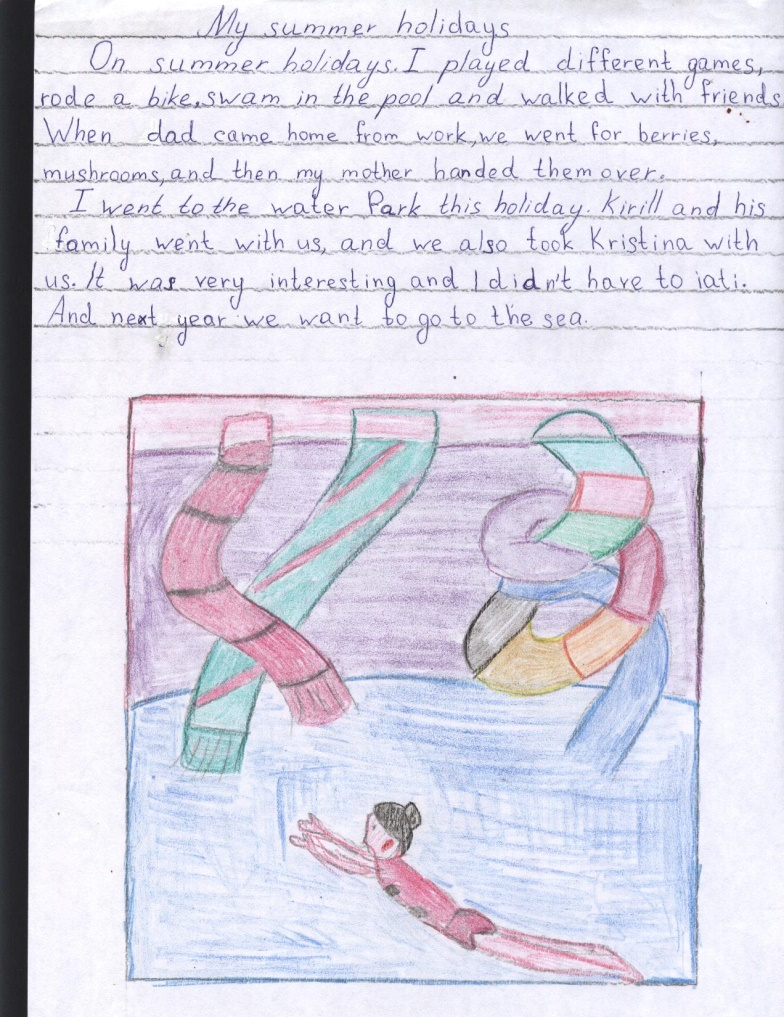 My summer holidays
On summer holidays. I played different games,
rode a bike, swam in the pool and walked with friends
When dad came home from work, we went for berries,
mushrooms, and then my mother handed them over.
I went to the water Park this holiday. Kirill and his
family went with us, and we also took Kristina with
us. It was very interesting and I didn't have to iati.
And next year we want to go to the sea.